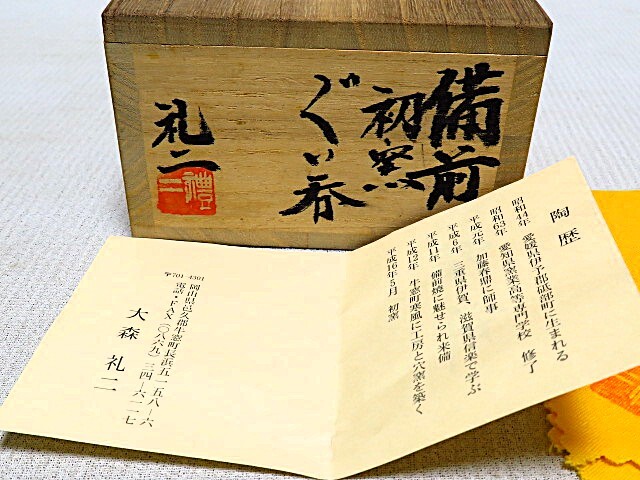 備前
初窯
ぐい呑
礼二
禮二
陶歴
昭和44年 愛媛県伊予郡砥部町に生まれる
昭和63年 愛知県窯業高等専門学校 修了
平成元年 加藤春鼎に師事
平成6年 三重県伊賀、滋賀県信楽で学ぶ
平成11年 備前焼に魅せられ来備
平成12年 牛窓町寒風に工房と穴窯を築く
平成16年5月 初窯
〒701-4301
岡山県邑久郡牛窓町長浜五一五八―六
電話・FAX(〇八六九)三四―六一二七
大森 礼二